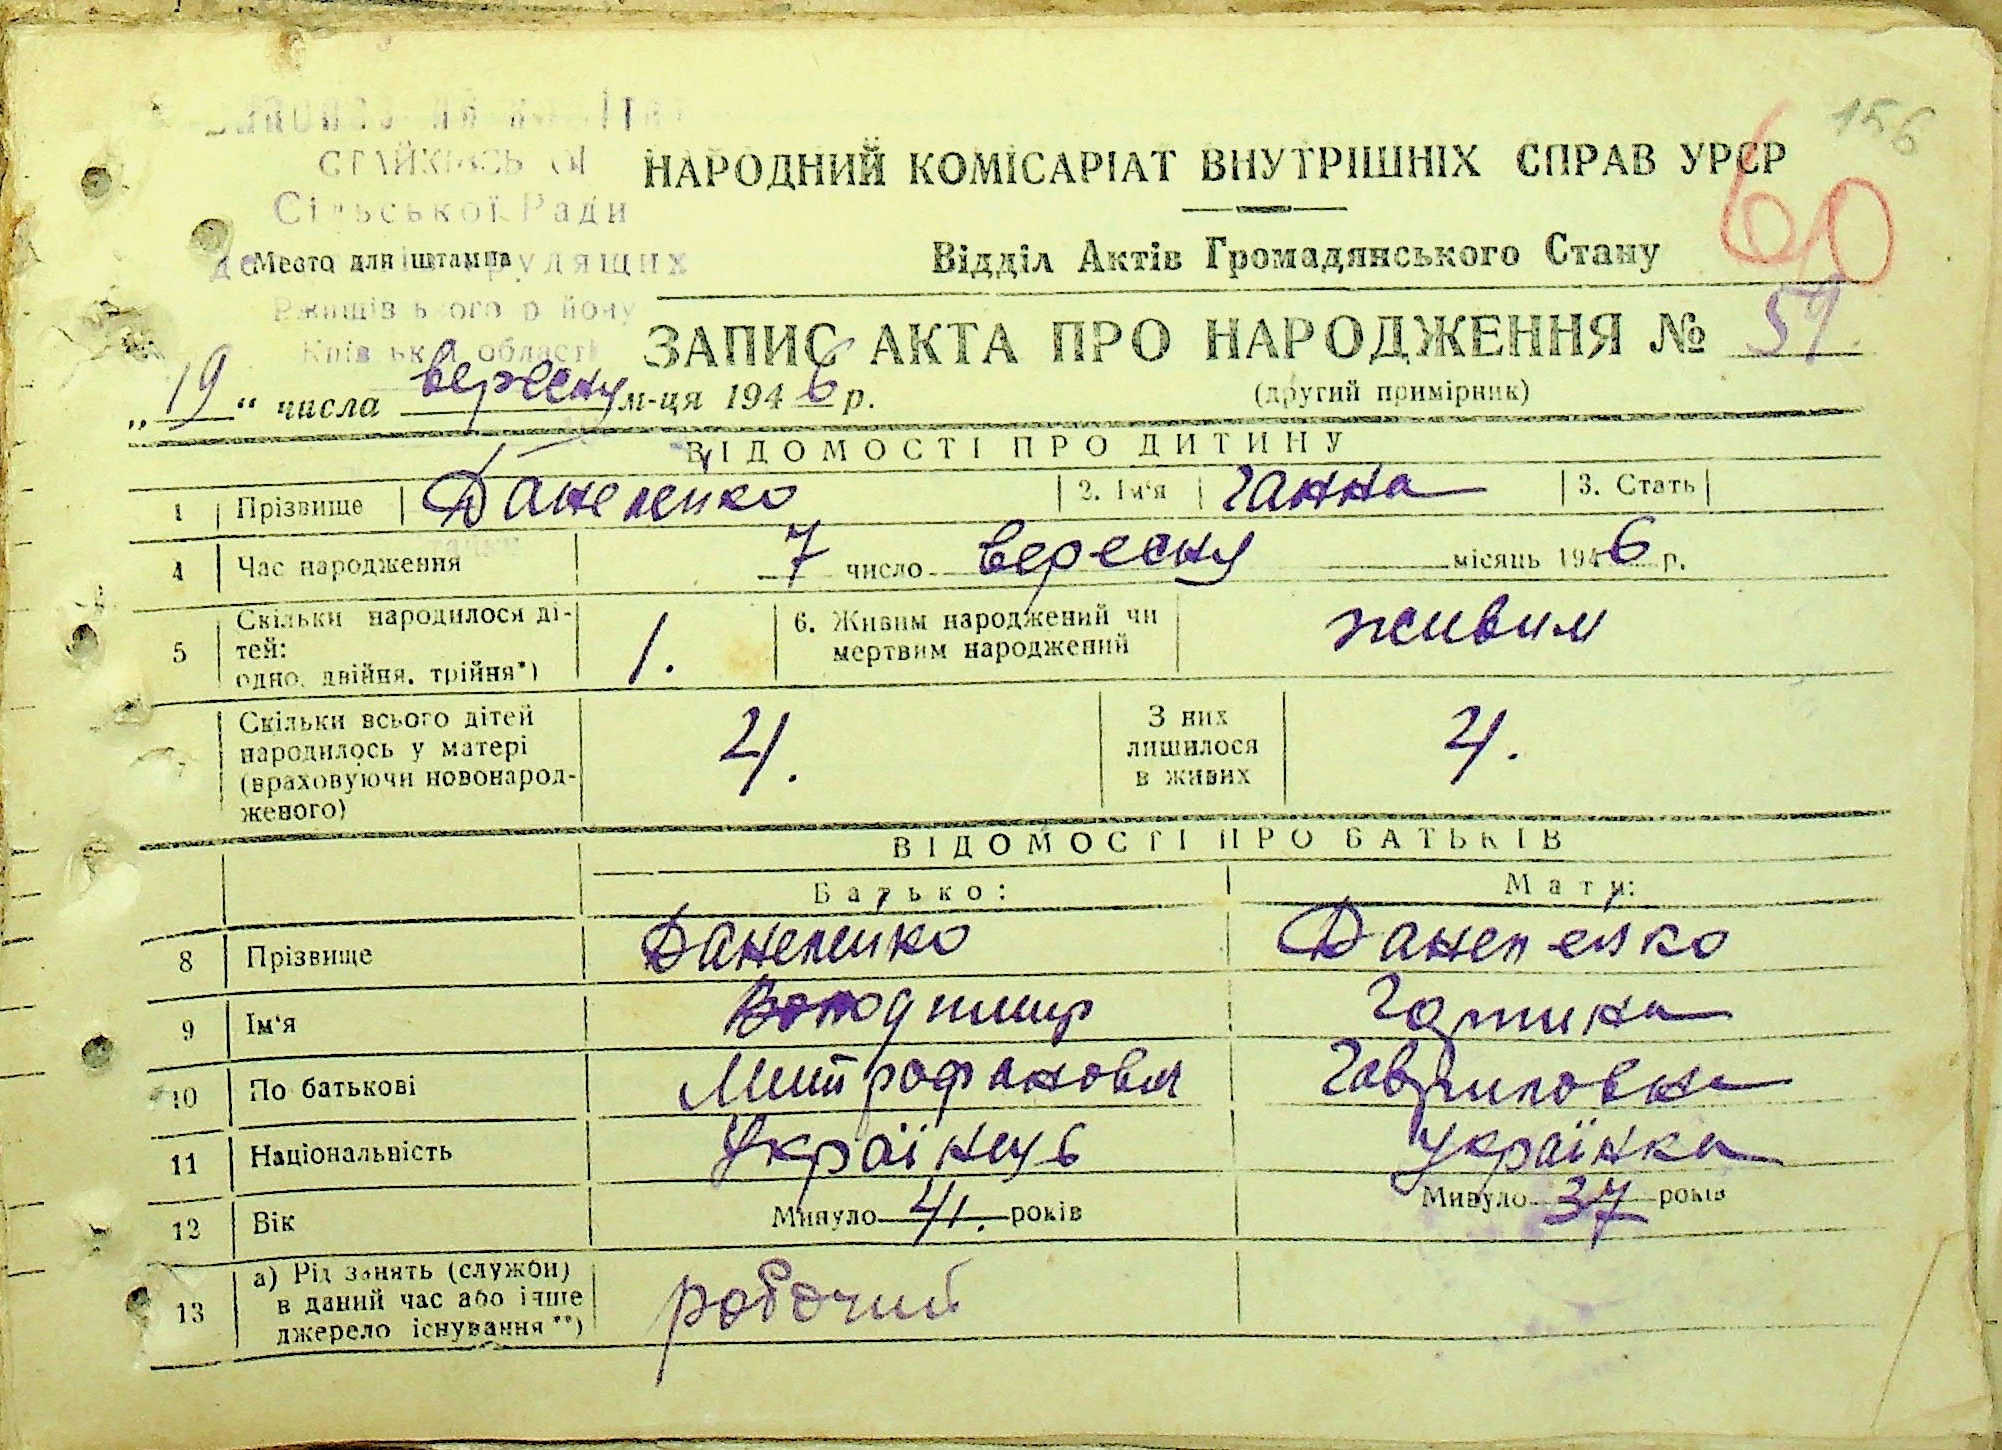 156
60
Сільської Ради
НАРОДНИЙ КОМІСАРІАТ ВНУТРІШНІХ СПРАВ УРСР
Место для штампа трудящих
Відділ Актів Громадянського Стану
Ржищівського району
Київської області
ЗАПИС АКТА ПРО НАРОДЖЕННЯ № 59
(другий примірник)
„19“ числа вересня м-ця 1946 р.
ВІДОМОСТІ ПРО ДИТИНУ
1 Прізвище Даненко 2. Ім'я Ганна 3. Стать
4 Час народження 7 число вересня місяць 1946 р.
5 Скільки народилося ді-
тей:
одно, двійня, трійня*) 1.
6. Живим народжений чи
мертвим народжений живим
7 Скільки всього дітей
народилось у матері
(враховуючи новонарод-
женого) 4.
З них
лишилося
в живих 4.
ВІДОМОСТІ ПРО БАТЬКІВ
Батько: Мати:
8 Прізвище Данеленко Данеленко
9 Ім'я Володимир Галина
10 По батькові Митрофанович Гавриловна
11 Національність Українець Українка
12 Вік Минуло 41. років Минуло 37 років
13 а) Рід занять (служби)
в даний час або інше
джерело існування**) робочий